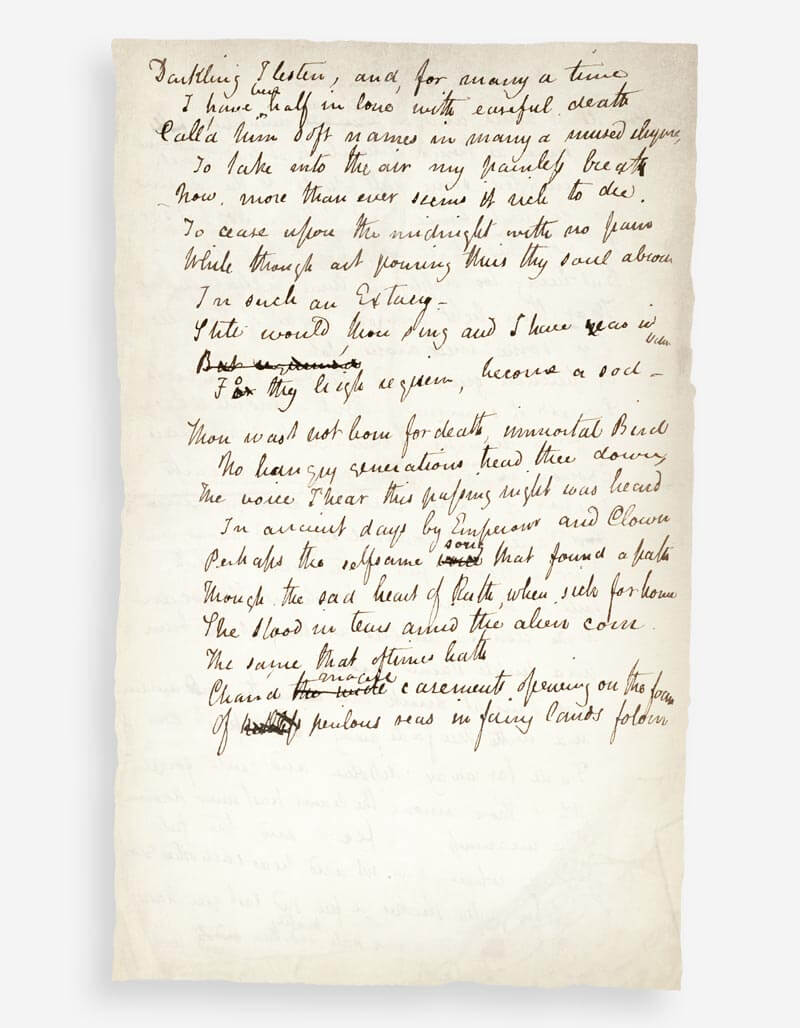 Darkling I listen, and, for many a time
I have been half in love with easeful death
Call'd him soft names in many a mused rhyme,
To take into the air my painless breath
Now, more than ever seems it rich to die.
To cease upon the midnight with no pain
While though art pouring thus thy soul abroad
In such an Extacy—
Still would thou sing and I have ears in vain
But requiem'd
For thy high requiem, become a sod—
Thou wast not born for death, immortal Bird
No hungry generations tread thee down,
The voice I hear this passing night was heard
In ancient days by Emperour and Clown
Perhaps the selfsame voice song that found a path
Though the sad heart of Ruth, when sick for home
She stood in tears amid the alien corn.
The same that oftimes hath
Charm'd the wide magic casements opening on the foam
Of perilous seas in fairy lands folorn